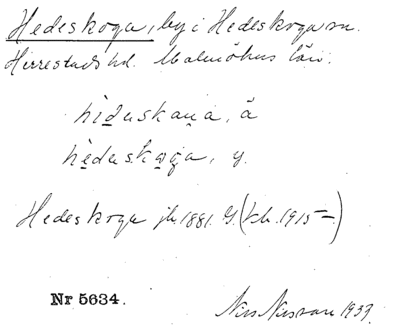 Hedeskoga, by i Hedeskoga sn.
Herrestads hd. Malmöhus län.
hiduskaua, ä
hèduskaga, y.
Hedeskoga jb. 1881. G. (kb. 1915—)
Nr 5634.
Nils Nilsson 1933